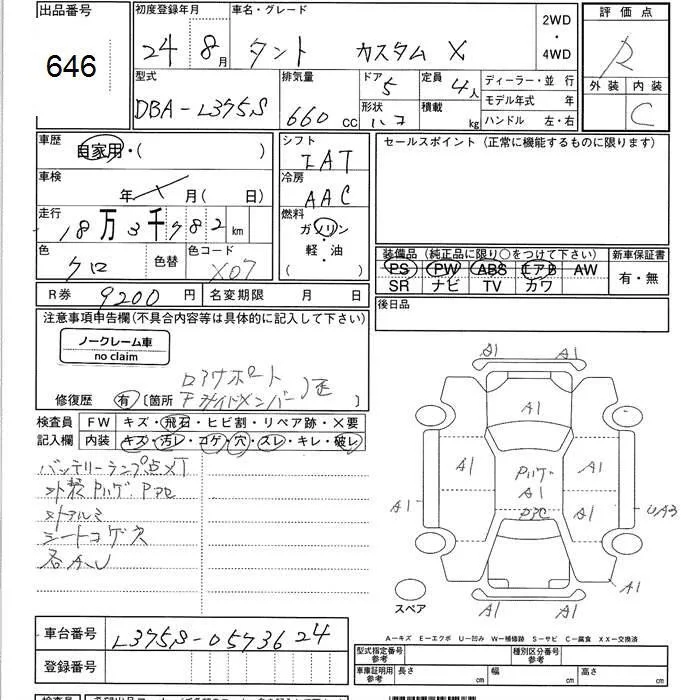 出品番号 初度登録年月 車名・グレード 2WD・4WD 評価点
646 24 8月 タント カスタム X R
型式 排気量 ドア 定員 ディーラー・並行 外装 内装
DBA-L375S 660cc 5 4人 モデル年式 年 C
形状 ハコ 積載 kg ハンドル 左・右
車歴 シフト セールスポイント (正常に機能するものに限ります)
自家用・( ) IAT
車検 冷房
年 月( 日) AAC
走行 燃料
18万3千782km ガソリン
軽・油
色 色替 色コード ( )
クロ X07
装備品 (純正品に限り○をつけて下さい) 新車保証書
PS PW ABS エアB AW 有・無
SR ナビ TV カワ
R券 9200円 名変期限 月 日 後日品
注意事項申告欄(不具合内容等は具体的に記入して下さい)
ノークレーム車
no claim
修復歴 有 [箇所 ロアサポート
Fサイドメンバー]
検査員 FW キズ・飛石・ヒビ割・リペア跡・X要
記入欄 内装 キズ・汚レ・コゲ・穴・スレ・キレ・破レ
バッテリーランプ点灯
外装Pハゲ PアC
外アルミ
シートコゲ穴
各A.U
A1 A1
A1
A1 Pハゲ A1
A1 A1 UA3
A1 PアC A1
A1
A1 A1
スペア
車台番号 L375S-0573624
A-キズ E-エクボ U-凹み W-補修跡 S-サビ C-腐食 XX-交換済
登録番号 型式指定番号 参考 種別区分番号 参考
車庫証明用 参考 長さ cm 幅 cm 高さ cm